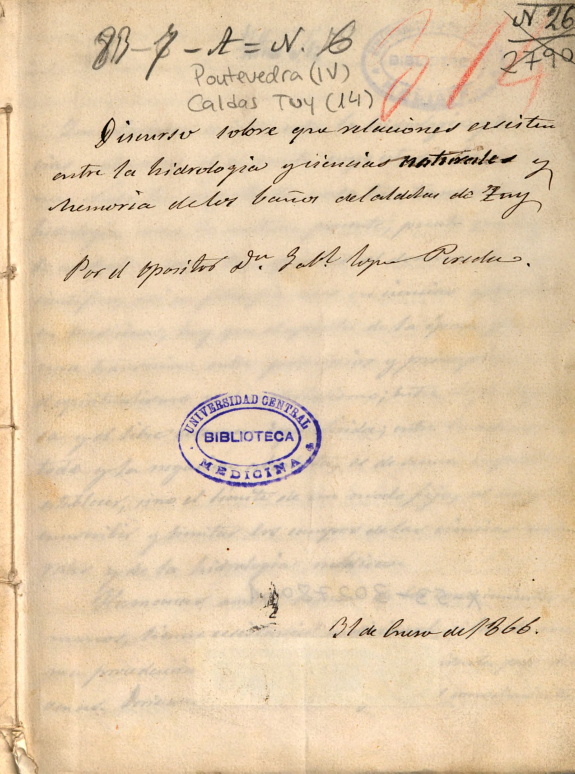 N 26
2790
83-7-A=N. 6
Pontevedra (IV)
Caldas Tuy (14)
Discurso sobre que relaciones ecsisten
entre la hidrologia y ciencias naturales y
Memoria de los baños de caldelas de Tuy
Por el opositor Dn. Lopez Pereda.
UNIVERSIDAD CENTRAL
BIBLIOTECA
MEDICINA
31 de Enero de 1866.